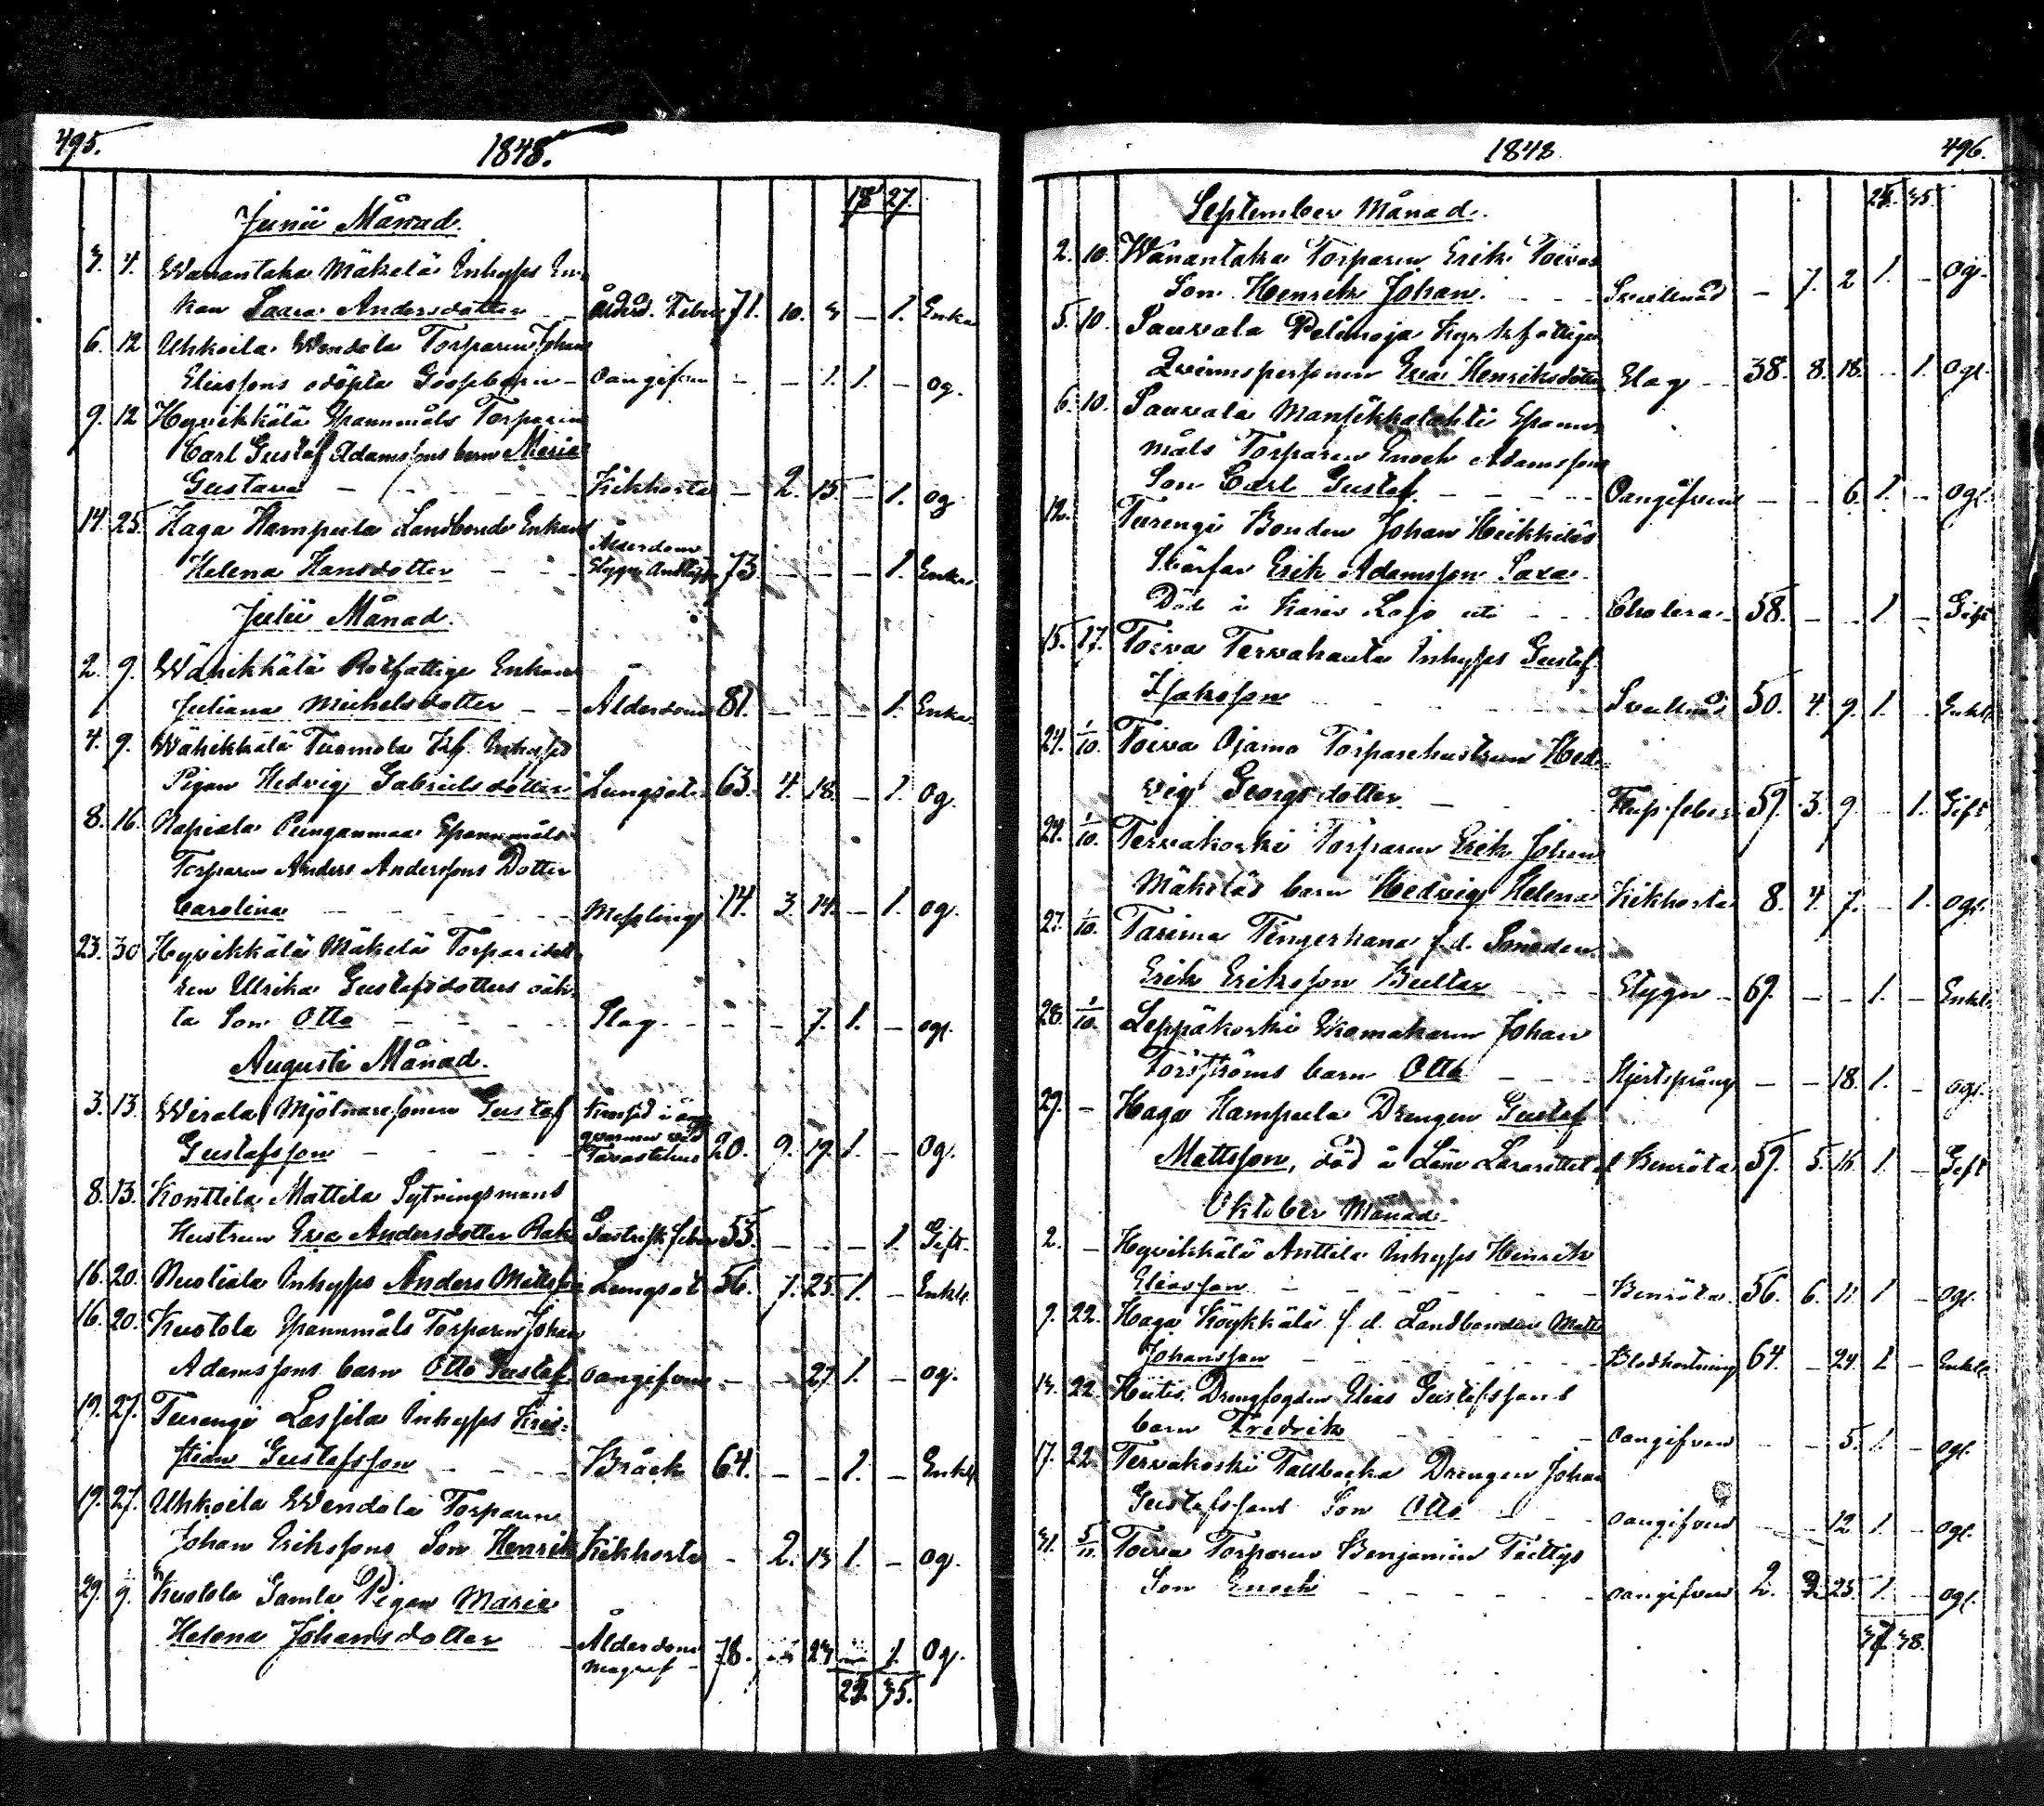 495.
1848.
18 27.
Junii Månad.
3. 4. Wanantaka Mäkelä Inhyses En-
kan Saara Andersdotter - - Ålderd. Feber 71. 10. 3 - 1. Enka
6. 12 Uhkoila Wendola Torparen Johan
Eliassons odöpta Gossebarn - Oangifven - - 1. 1. - Og.
9. 12 Hyvikkälä Spannmåls Torparen
Carl Gustaf Adamssons barn Maria
Gustava - - - - - Kikhosta - 2. 15 - 1. Og
14. 25. Haga Hampula Landbonde Enkan
Helena Hansdotter - - - Ålderdom Stygn Andtäppa 73. - - - 1. Enka
Julii Månad.
2. 9. Wähikkälä Rotfattige Enkan
Juliana Michelsdotter - - Ålderdom 81. - - - 1. Enka
4. 9. Wähikkälä Tuomola Inhyses
Pigan Hedvig Gabrielsdotter Lungsot 63. 4. 18. - 1. Og.
8. 16. Napiala Punganmaa Spannmåls
Torparen Anders Anderssons Dotter
Carolina - - - - - Messling 14. 3. 14. - 1. Og.
23. 30 Hyvikkälä Mäkelä Torparedott-
ren Ulrika Gustafsdotters oäk-
ta Son Otto - - - - Slag - - - 7. 1. - Ogf.
Augusti Månad.
3. 13. Wirala Mjölnaresonen Gustaf
Gustafsson - - - - - qvarnen vid Tavastehus 20. 9. 19. 1. - Og.
8. 13. Konttila Mattila Sytningsmans
Hustrun Eva Andersdotter Rak Gastrisk feber 53. - - - 1. Gift.
16. 20. Nuoliala Inhyses Anders Mattsson Lungsot 56. 7. 25. 1. - Enkl.
16. 20. Kuotola Spannmåls Torparen Johan
Adamssons barn Otto Gustaf Oangifven - - 27. 1. - Og.
19. 27. Turengi Lassila Inhyses Kris-
tian Gustafsson - - - - Bråck 64. - - 1. - Enkl.
19. 27. Uhkoila Wendola Torparen
Johan Erikssons Son Henrik Kikhosta - 2. 13 1. - Og.
29. 3/9. Kuotola Gamla Pigan Maria
Helena Johansdotter - Ålderdom 78. 23 1. Og.
35.
1848
496.
35.
September Månad.
2. 10. Wanantaka Torparen Erik Toivos
Son Henrik Johan. - - - Svullnad - 7. 2 1. - Og.
5. 10. Sauvala Pelinoja Kyrkofattiga
Qvinnspersonen Eva Henriksdotter Slag - 38. 8. 18. - 1. Ogf.
6. 10. Sauvala Mansikkalahti Spann-
måls Torparen Enoch Adamssons
Son Carl Gustaf. - - - - Oangifven - - 6. 1. - Ogf.
12. Turengi Bonden Johan Heikkiläs
Svärfar Erik Adamsson Saxa
Död i Karis Lojo uti - - Cholera - 58. - - 1 - Gift
15. 17. Toiva Tervahauta Inhyses Gustaf
Isaksson - - - - - Svullnad 50. 4. 9. 1. - Enkl.
24. 1/10. Toiva Ojamo Torparehustrun Hed-
vig Georgsdotter - 59. 3. 9. - 1. Gift
24. 1/10. Tervakoski Torparen Erik Johan
Mäkeläs barn Hedvig Helena Kikhosta 8. 4. 7. - 1. Ogf.
27. 1/10. Tarima Tingerhana f.d. Sonaden
Erik Eriksson Bultar - - Stygn - 69. - - 1. - Enkl.
28. 1/10. Leppäkoski Wermakaren Johan
Törsströms barn Otto - - - Hjertsprång - - 18. 1. - Ogf.
29. - Haga Hampula Drengen Gustaf
Mattsson, död å Läns Lazarettet af Benröta 59. 5. 16. 1. - Gift
Oktober Månad.
2. - Hyvikkälä Anttila Inhyses Henrik
Eliasson - - - - - Benröta 56. 6. 11. 1 - Ogf.
9. 22. Haga Köykkälä f.d. Landbonden Matts
Johansson - - - - - Blodhostning 64. - 24. 1 - Enkl.
13. 22. Hiitis Drengfogden Elias Gustafssons
barn Fredrik - - - - Oangifven - - 5. 1. - Ogf.
17. 22 Tervakoski Tallbacka Drengen Johan
Gustafssons Son Otto - - - Oangifven - - 12 1. - Ogf.
31. 5/11. Toiva Torparen Benjamin Tättys
Son Enoch - - - - - Oangifven 2. 2. 25. 1. - Ogf.
38.